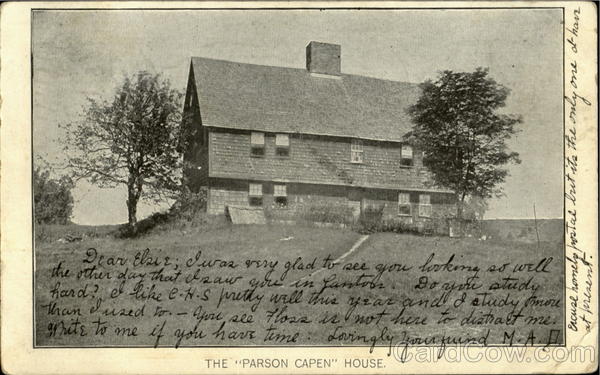 Dear Elsie; I was very glad to see you looking so well
the other day that I saw you in Do you study
hard? I like C-H-S pretty well this year and I study more
than I used to – You see Floss is not here to distract me.
Write to me if you have time. Lovingly your friend M-A
Excuse homely postal but its the only one I have
at present.
THE "PARSON CAPEN" HOUSE.
CardCow.com